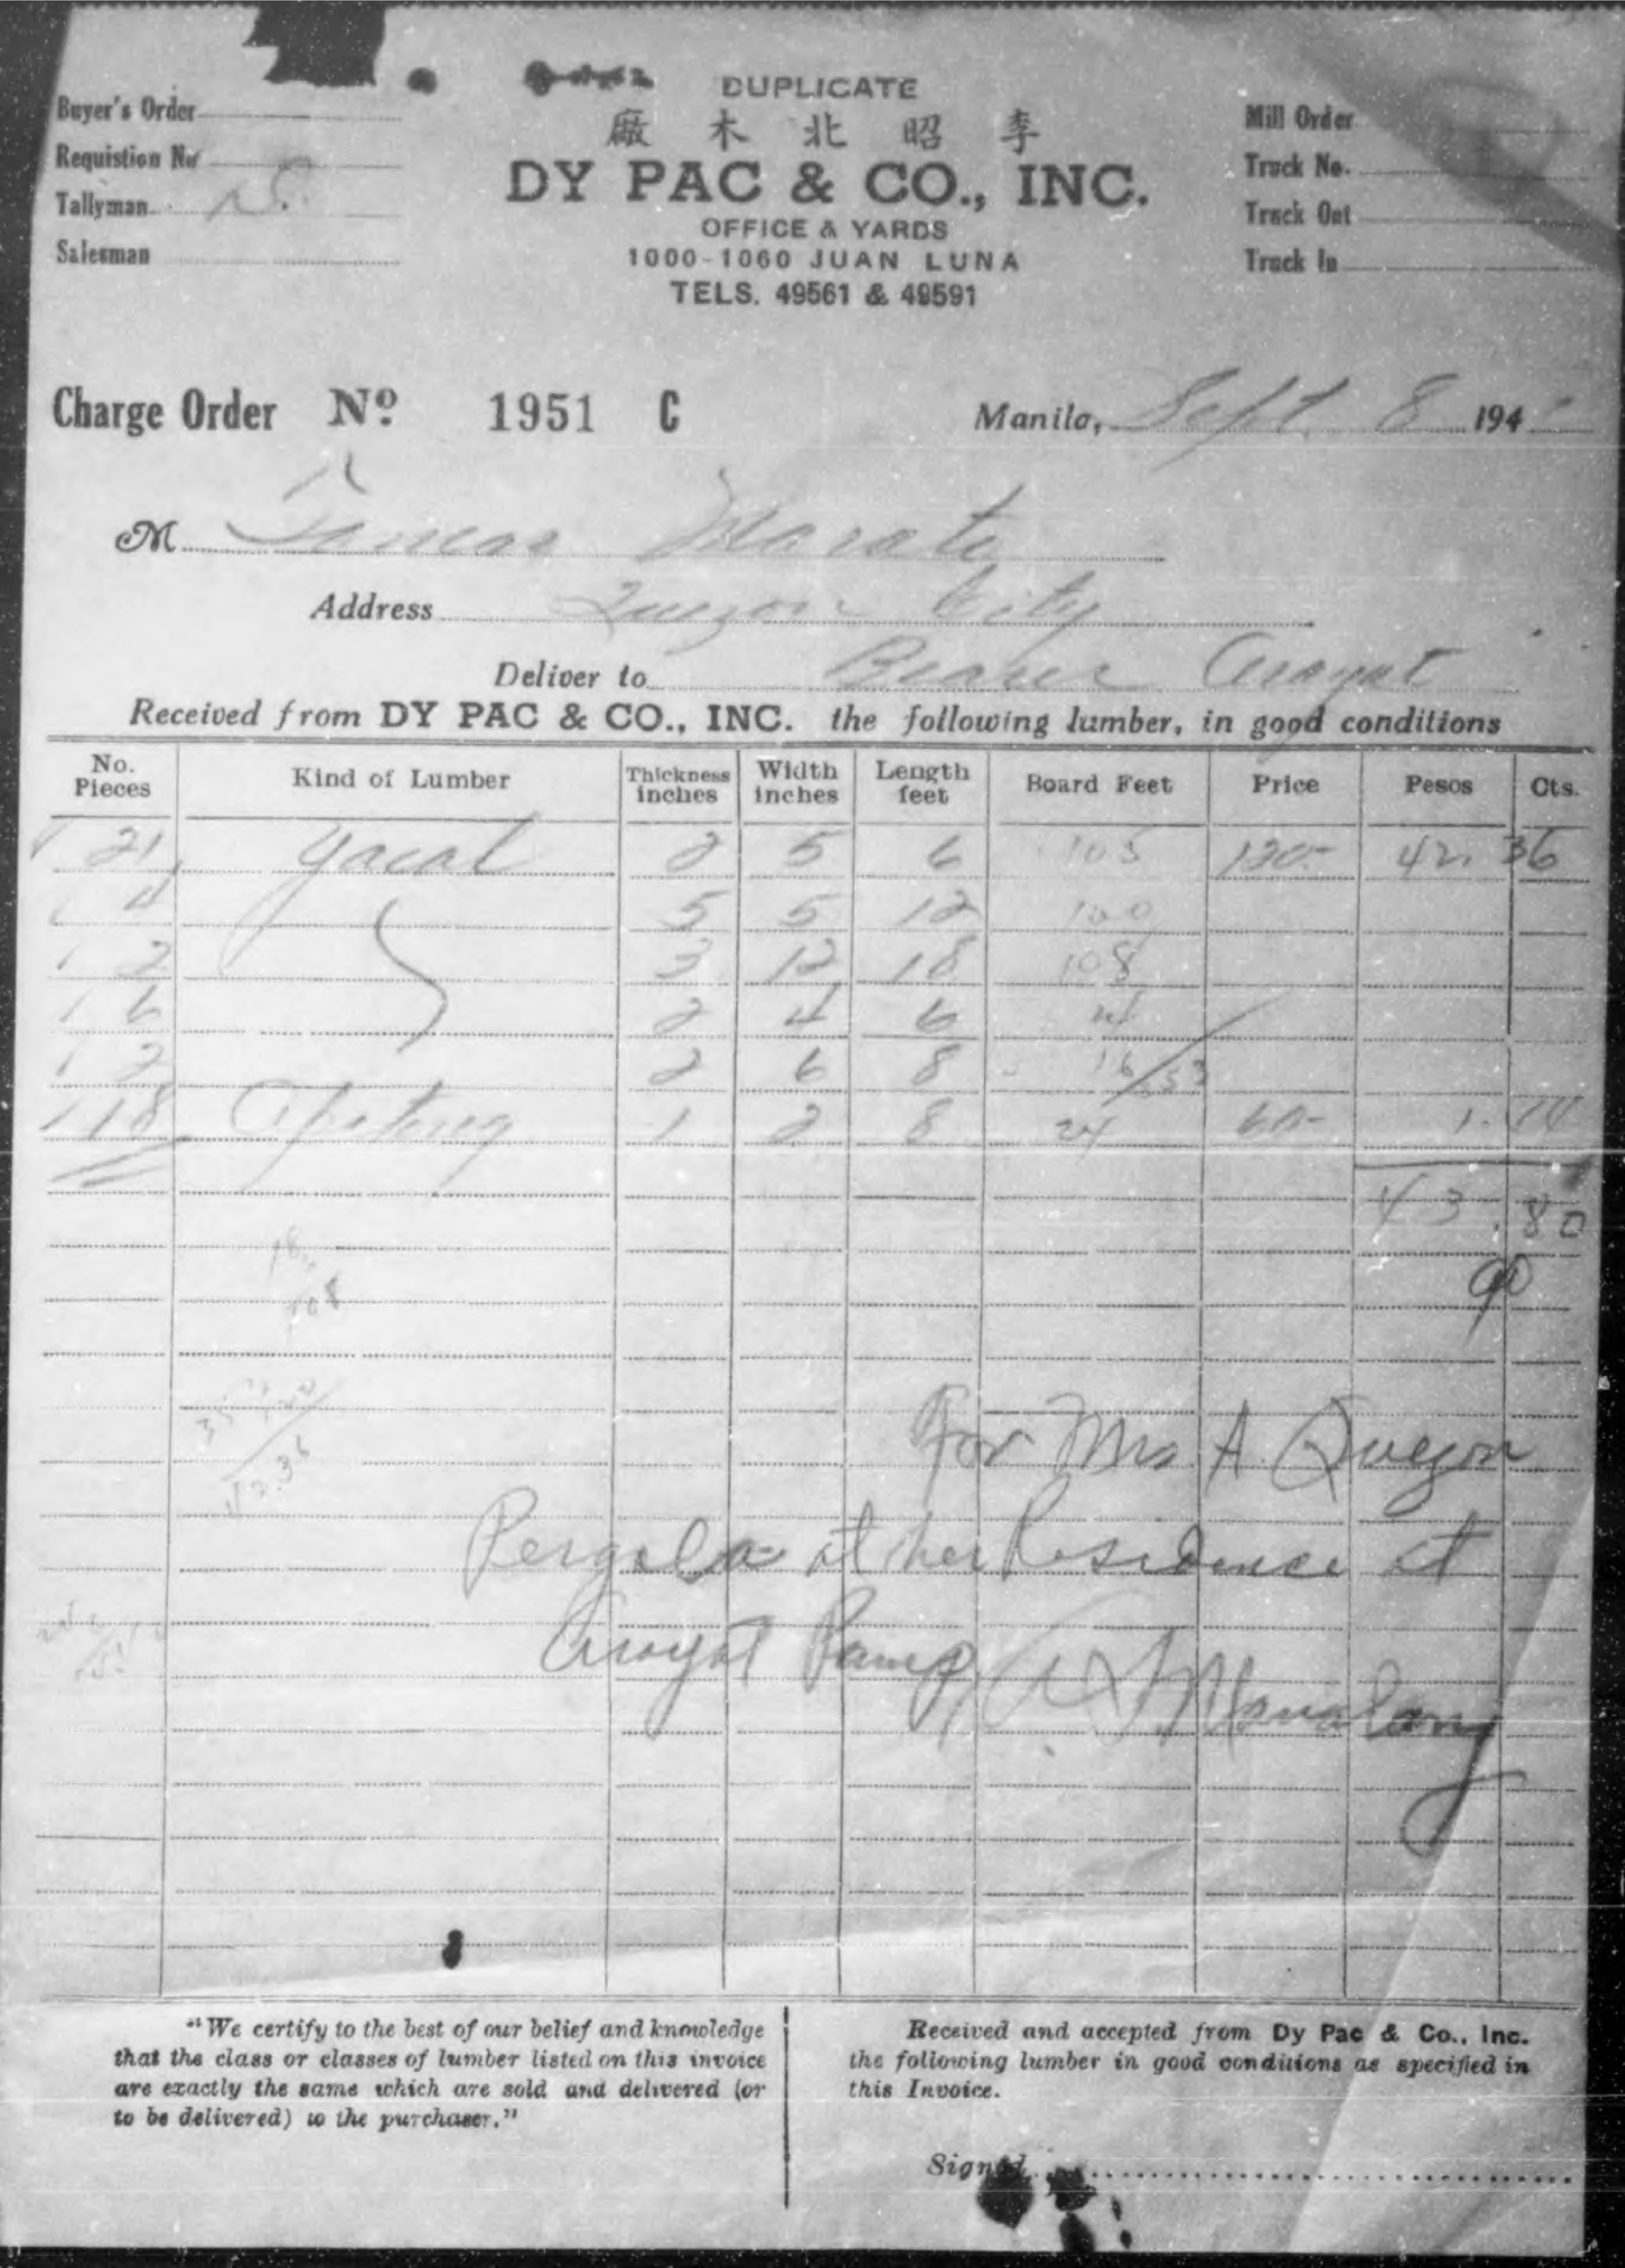 DUPLICATE
Buyer's Order
Requistion No
Tallyman
Salesman
廠 木 北 昭 李
DY PAC & CO., INC.
OFFICE & YARDS
1000-1060 JUAN LUNA
TELS. 49561 & 49591
Mill Order
Truck No.
Truck Out
Truck In
Charge Order Nº 1951 C
Manila, Sept. 8 194
M Tomas Morato
Address Quezon City
Deliver to Bearer Arayat
Received from DY PAC & CO., INC. the following lumber, in good conditions
No. Pieces Kind of Lumber Thickness inches Width inches Length feet Board Feet Price Pesos Cts.
21 Yacal 2 5 6 105 120- 42. 36
4 5 5 12 100
2 3 12 18 108
6 2 4 6 24
2 2 6 8 16/353
18 Apitong 1 2 8 24 60- 1. 44
43.80
108
42.36
For Mrs. A. Quezon
Pergola at her Residence at
Arayat Pamp.
Manalang
"We certify to the best of our belief and knowledge
that the class or classes of lumber listed on this invoice
are exactly the same which are sold and delivered (or
to be delivered) to the purchaser."
Received and accepted from Dy Pac & Co., Inc.
the following lumber in good conditions as specified in
this Invoice.
Signed